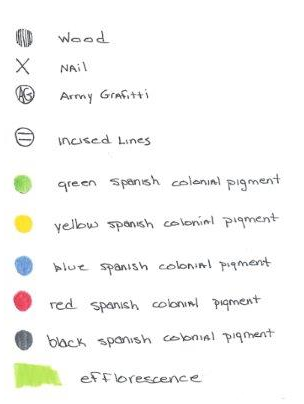 Wood
X NAil
AG Army Grafitti
incised Lines
green spanish colonial pigment
yellow spanish colonial pigment
blue spanish colonial pigment
red spanish colonial pigment
black spanish colonial pigment
efflorescence